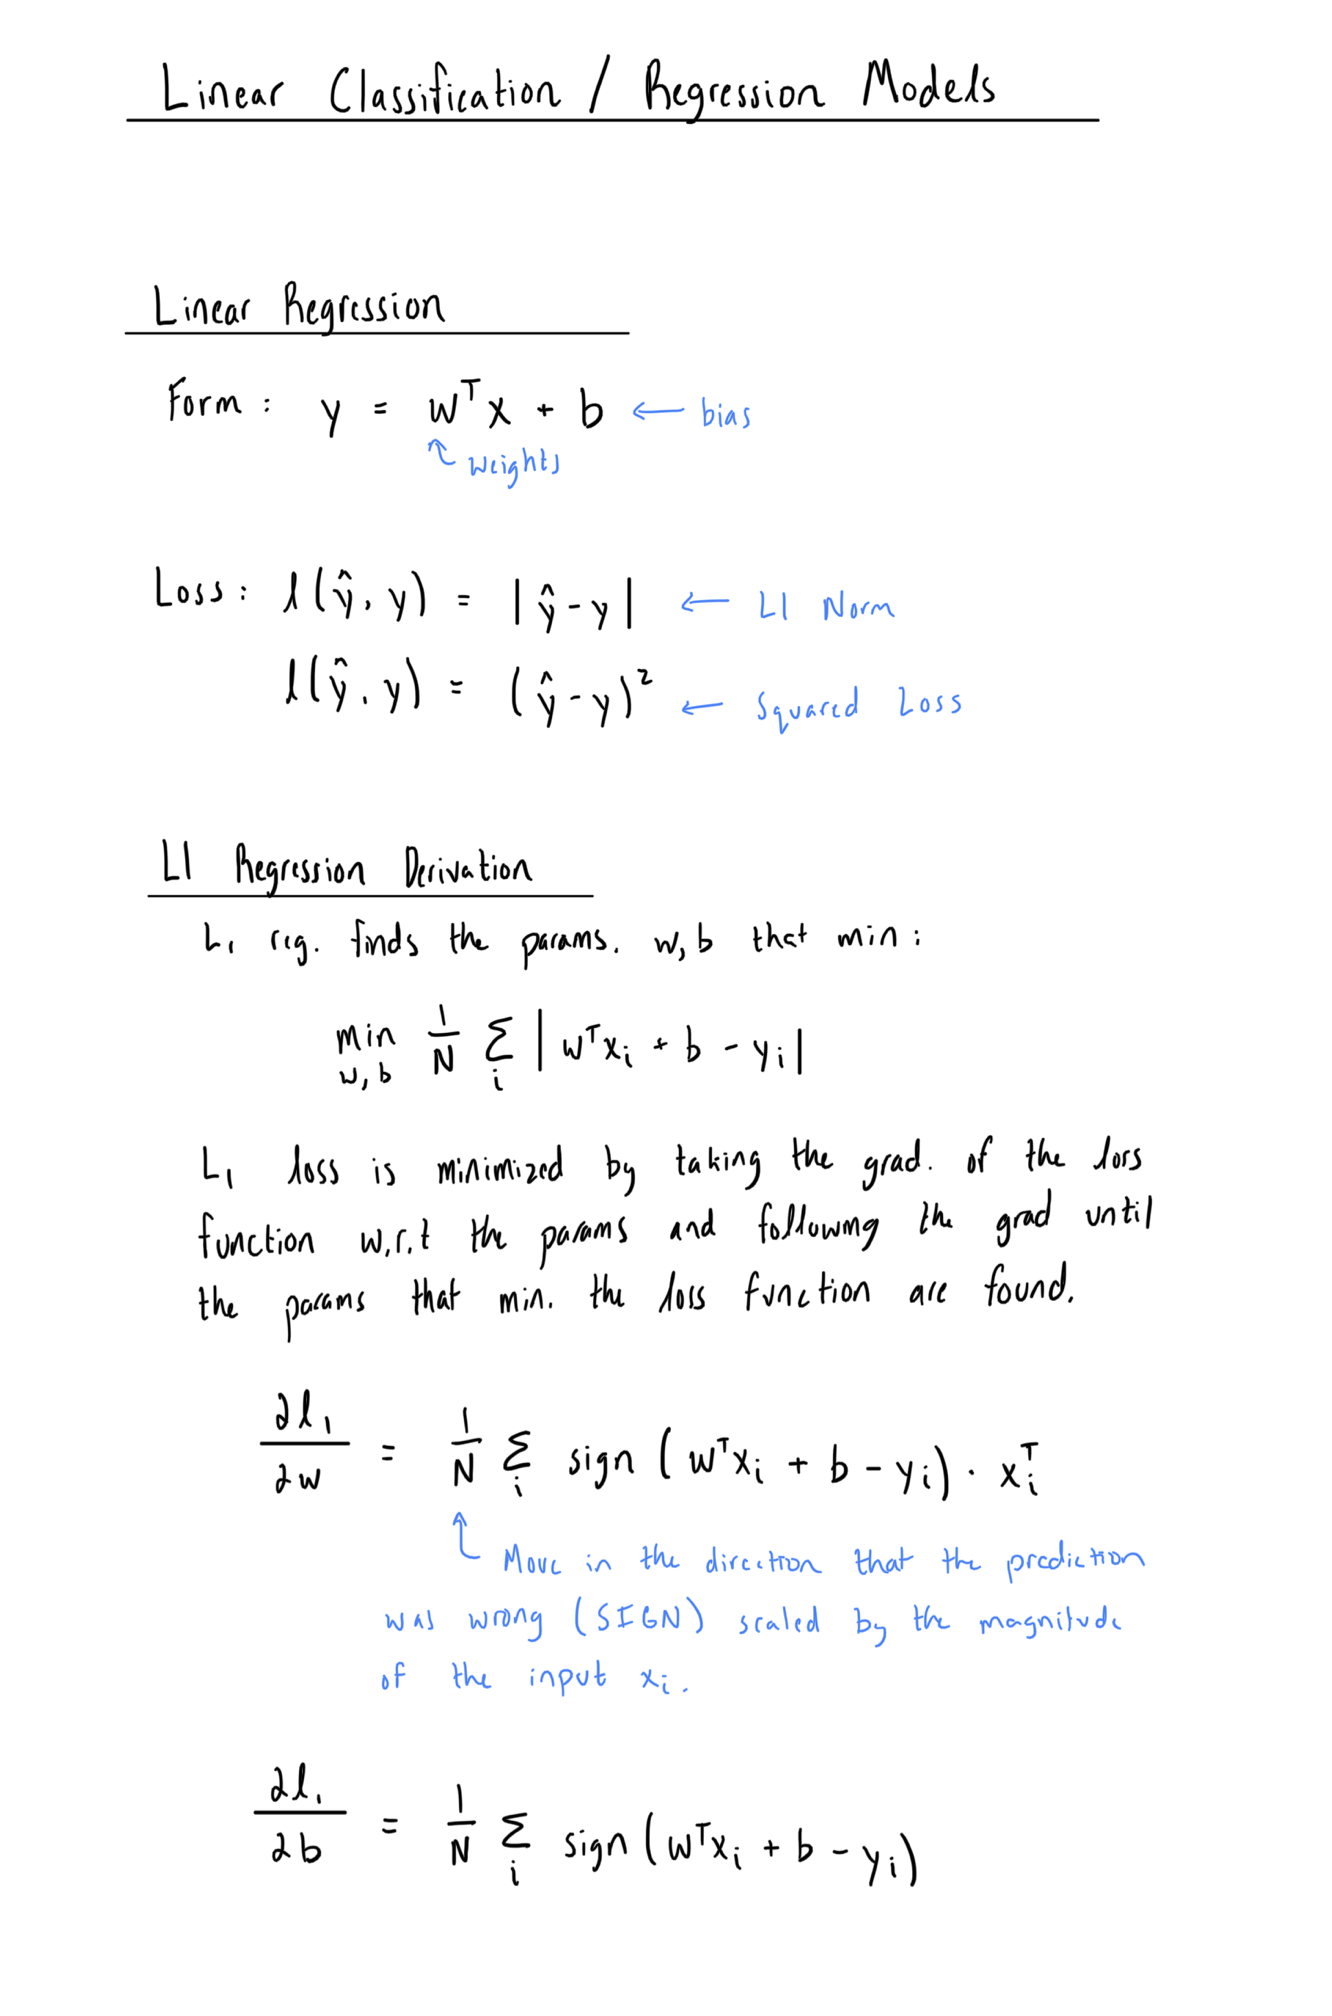 Linear Classification / Regression Models
Linear Regression
Form: y = wᵀx + b ← bias
↑ weights
Loss: l(ŷ, y) = |ŷ - y| ← L1 Norm
l(ŷ, y) = (ŷ - y)² ← Squared Loss
L1 Regression Derivation
L₁ reg. finds the params. w, b that min:
min_{w, b} 1/N Σ_i |wᵀx_i + b - y_i|
L₁ loss is minimized by taking the grad. of the loss
function w.r.t the params and following the grad until
the params that min. the loss function are found.
∂l₁/∂w = 1/N Σ_i sign(wᵀx_i + b - y_i) · x_iᵀ
↑ Move in the direction that the prediction
was wrong (SIGN) scaled by the magnitude
of the input x_i.
∂l₁/∂b = 1/N Σ_i sign(wᵀx_i + b - y_i)